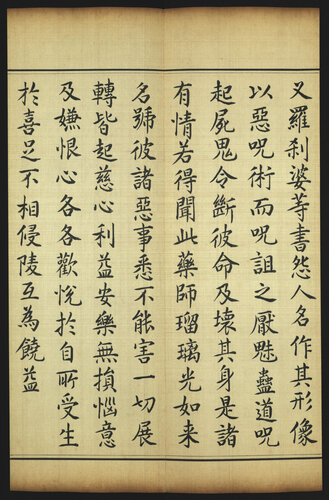 又羅剎婆等書怨人名作其形像
以惡呪術而呪詛之厭魅蠱道呪
起屍鬼令斷彼命及壞其身是諸
有情若得聞此藥師瑠璃光如来
名號彼諸惡事悉不能害一切展
轉皆起慈心利益安樂無損惱意
及嫌恨心各各歡悅於自所受生
於喜足不相侵陵互為饒益